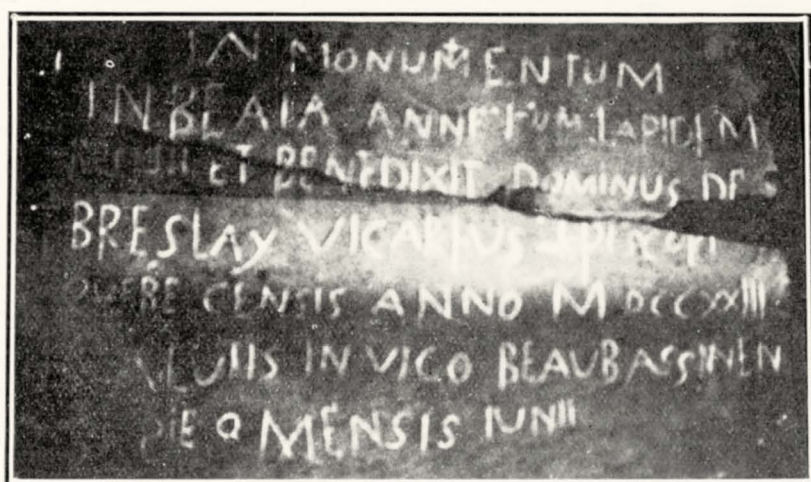 IN MONUMENTUM
IN BEATA ANNE LAPIDEM
ET BENEDIXIT DOMINUS DE
BRESLAY VICARIUS
CENSIS ANNO MDCCXXIII
IN VICO BEAUBASSINEN
DIE MENSIS IUNII